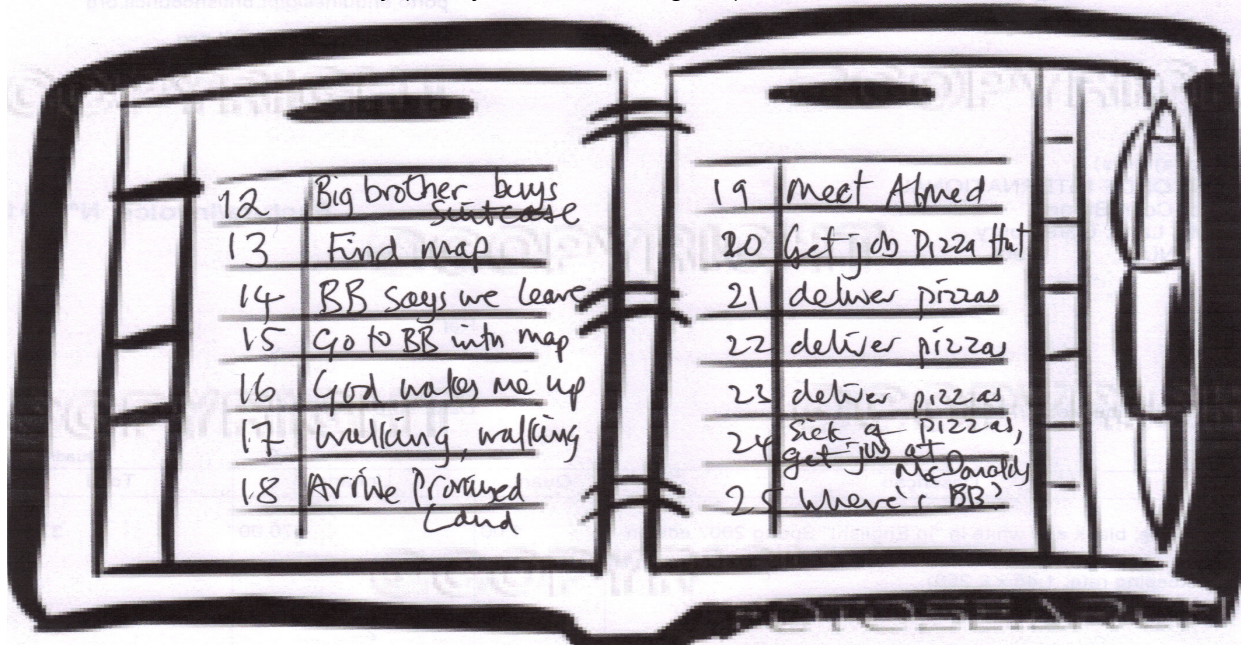 12 Big brother buys
suitcase
13 Find map
14 BB says we leave
15 Go to BB with map
16 God wakes me up
17 walking, walking
18 Arrive Promised
Land
19 Meet Ahmed
20 Get job Pizza Hut
21 deliver pizzas
22 deliver pizzas
23 deliver pizzas
24 Sick of pizzas,
get job at
McDonalds
25 Where's BB?
FOTOSEARCH